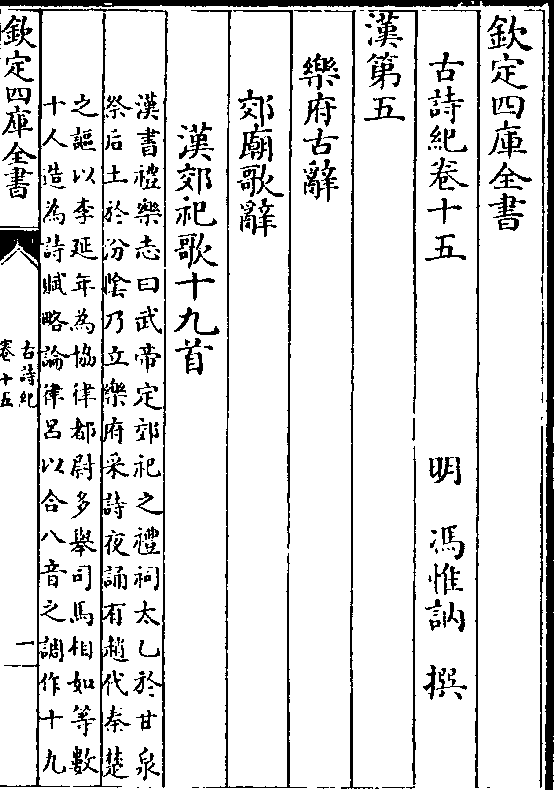 欽定四庫全書
古詩紀卷十五　明　馮惟訥　撰
漢第五
樂府古辭
郊廟歌辭
漢郊祀歌十九首
漢書禮樂志曰武帝定郊祀之禮祠太乙於甘泉
祭后土於汾陰乃立樂府采詩夜誦有趙代秦楚
之謳以李延年為協律都尉多舉司馬相如等數
十人造為詩賦略論律吕以合八音之調作十九
欽定四庫全書
古詩紀
卷十五
一